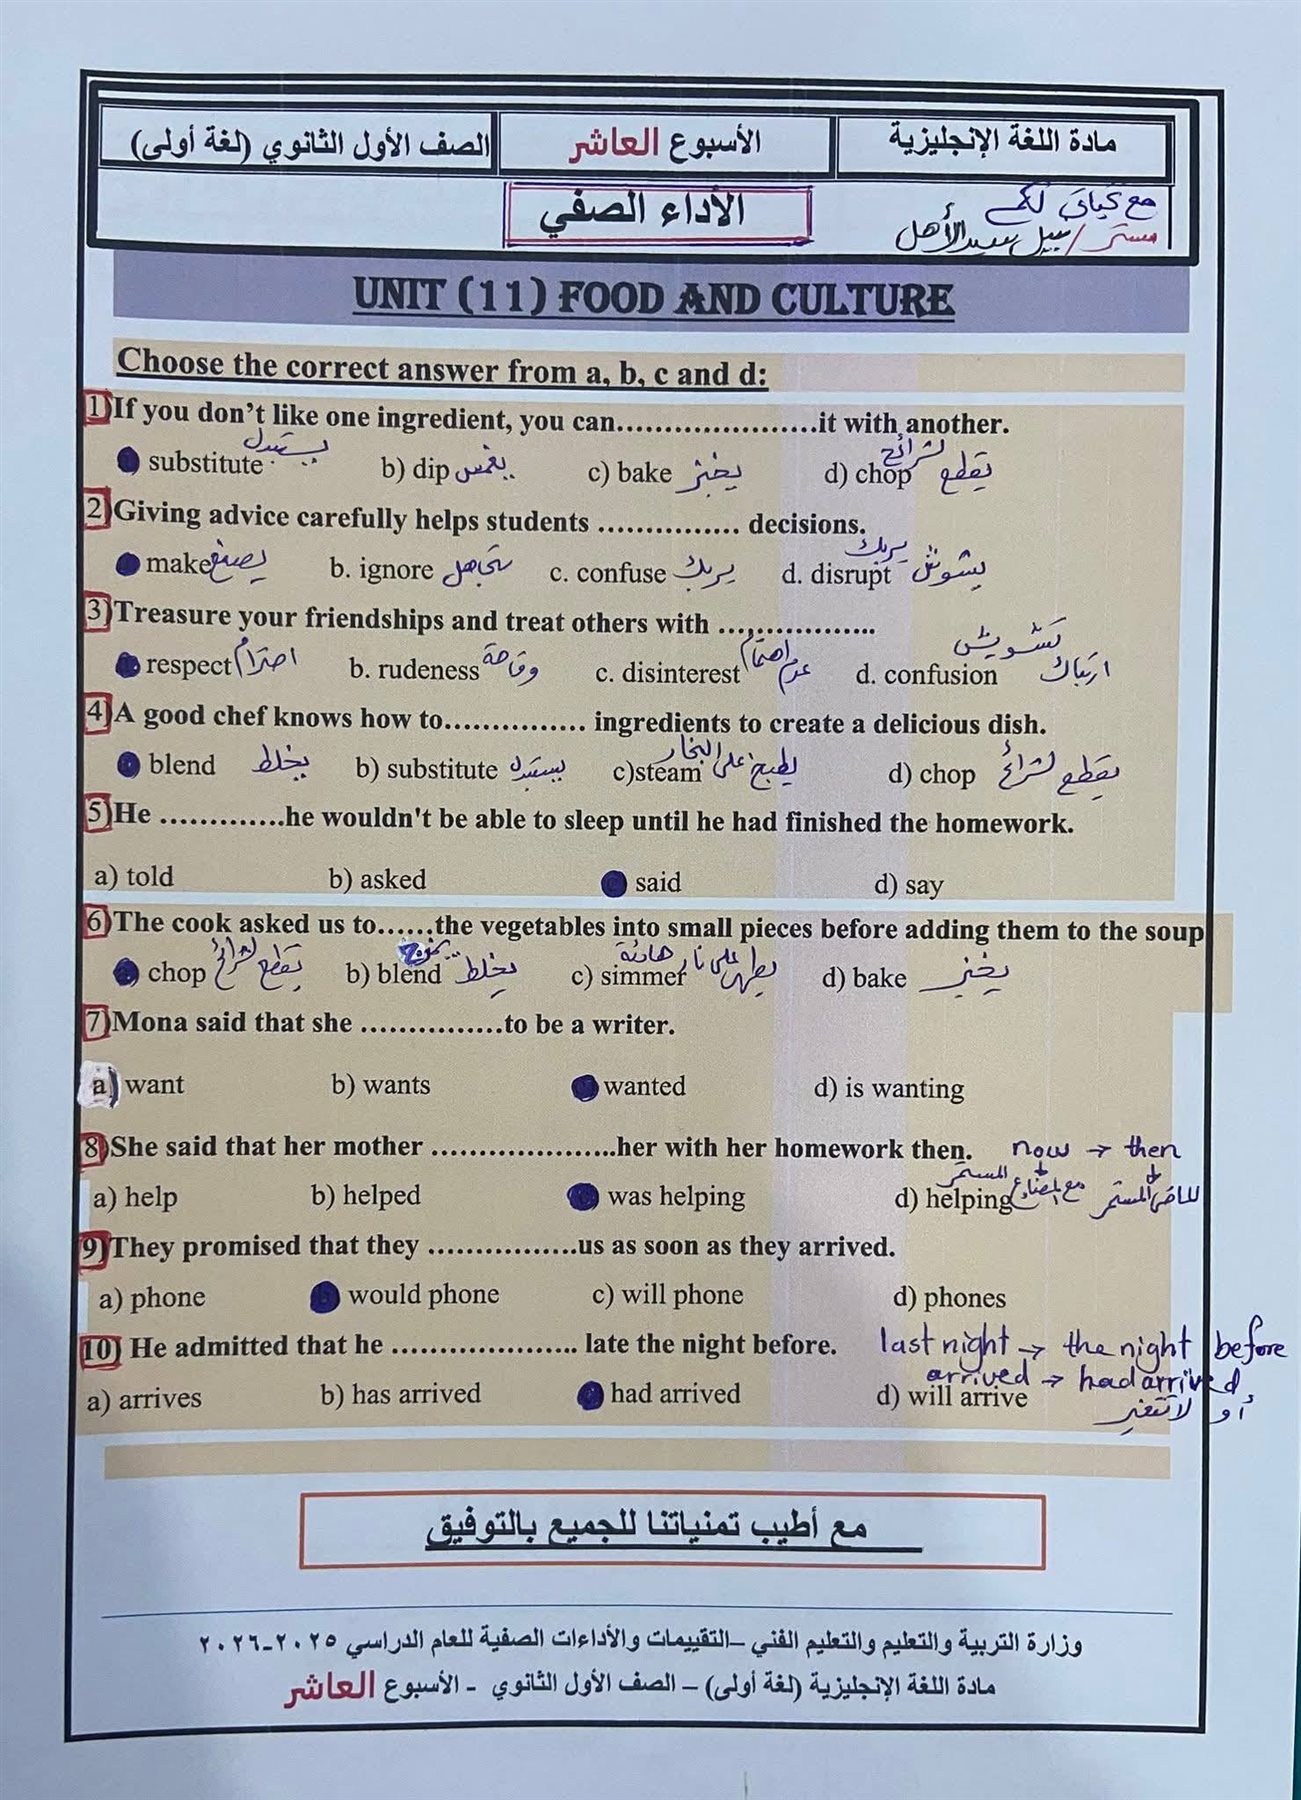 مادة اللغة الإنجليزية
الأسبوع العاشر
الصف الأول الثانوي (لغة أولى)
مع تحياتي لكم
مستر / نبيل سعيد الأهل
الأداء الصفي
UNIT (11) FOOD AND CULTURE
Choose the correct answer from a, b, c and d:
1)If you don't like one ingredient, you can………………….it with another.
substitute يستبدل b) dip يغمس c) bake يخبز d) chop يقطع لشرائح
2)Giving advice carefully helps students …………… decisions.
make يصنع b. ignore يتجاهل c. confuse يربك d. disrupt يشوش يربك
3)Treasure your friendships and treat others with ……………..
respect احترام b. rudeness وقاحة c. disinterest عدم اهتمام d. confusion ارتباك تشويش
4)A good chef knows how to…………… ingredients to create a delicious dish.
blend يخلط b) substitute يستبدل c)steam يطبخ على البخار d) chop يقطع لشرائح
5)He ………….he wouldn't be able to sleep until he had finished the homework.
a) told b) asked said d) say
6)The cook asked us to……the vegetables into small pieces before adding them to the soup
chop يقطع لشرائح b) blend يخلط يمزج c) simmer يطهى على نار هادئة d) bake يخبز
7)Mona said that she ……………to be a writer.
a) want b) wants wanted d) is wanting
8)She said that her mother ………………..her with her homework then. now → then
a) help b) helped was helping d) helping مع المضارع المستمر للماضى المستمر
9)They promised that they …………….us as soon as they arrived.
a) phone b would phone c) will phone d) phones
10) He admitted that he ………………… late the night before. last night → the night before
a) arrives b) has arrived had arrived d) will arrive arrived → had arrived
أو لا تتغير
مع أطيب تمنياتنا للجميع بالتوفيق
وزارة التربية والتعليم والتعليم الفني –التقييمات والأداءات الصفية للعام الدراسي ٢٠٢٥-٢٠٢٦
مادة اللغة الإنجليزية (لغة أولى) – الصف الأول الثانوي - الأسبوع العاشر